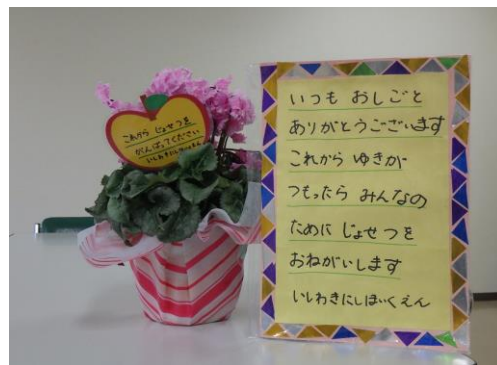 これから じょせつを
がんばってください
いしわきにしほいくえん
いつも おしごと
ありがとうございます
これから ゆきが
つもったら みんなの
ために じょせつを
おねがいします
いしわきにしほいくえん